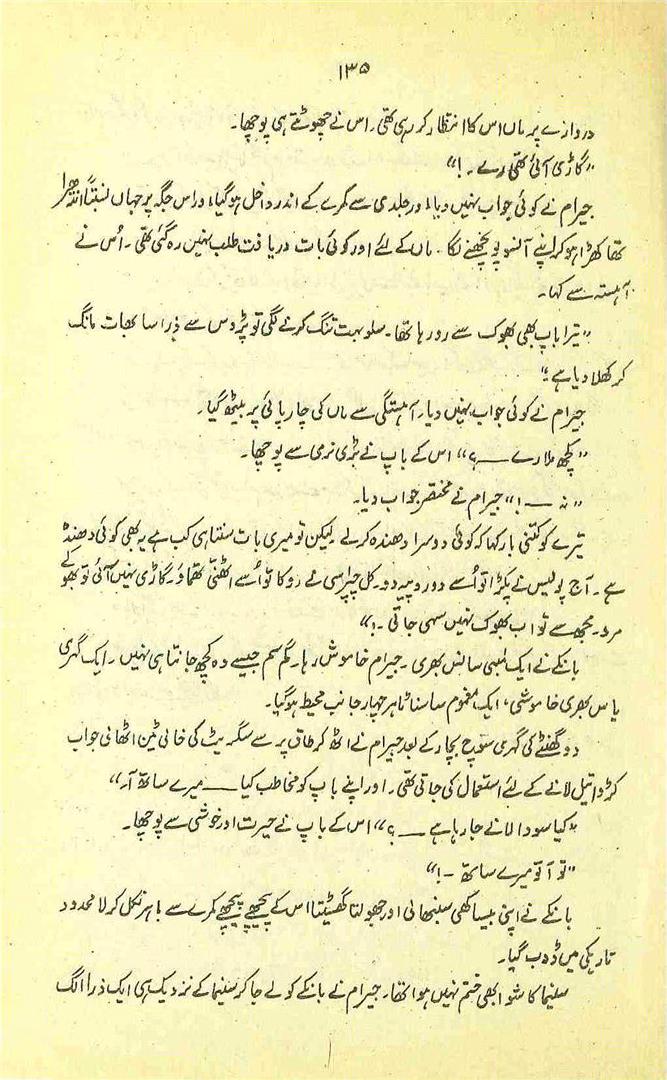 ۱۳۵
دروازے پر ماں اس کا انتظار کر رہی تھی۔ اس نے چھوٹتے ہی پوچھا۔
”گاڑی آئی تھی رے۔!“
جیرام نے کوئی جواب نہیں دیا، اور جلدی سے کمرے کے اندر داخل ہو گیا، وراس جگہ پر جہاں نسبتاً اندھیرا
تھا کھڑا ہو کر اپنے آنسو پونچھنے لگا۔ ماں کے لئے اور کوئی بات دریافت طلب نہیں رہ گئی تھی۔ اُس نے
آہستہ سے کہا۔
”تیرا باپ بھی بھوک سے رو رہا تھا۔ سلو بہت تنگ کرنے لگی تو پڑوس سے ذرا سا بھات مانگ
کر کھلا دیا ہے“
جیرام نے کوئی جواب نہیں دیا۔ آہستگی سے ماں کی چارپائی پر بیٹھ گیا۔
”کچھ ملا رے ــــ ؟“ اس کے باپ نے بڑی نرمی سے پوچھا۔
”نہ ــــ !“ جیرام نے مختصر جواب دیا۔
تیرے کو کتنی بار کہا کہ کوئی دوسرا دھندہ کر لے لیکن تو میری بات سنتا ہی کب ہے یہ بھی کوئی دھندہ
ہے۔ آج پولیس نے پکڑا تو اُسے دو روپیہ دو۔ کل چپراسی نے روکا تو اُسے اٹھنّی تھماؤ۔ گاڑی نہیں آئی تو بھوکے
مرو۔ مجھ سے تو اب بھوک نہیں سہی جاتی۔!“
بانکے نے ایک لمبی سانس بھری۔ جیرام خاموش رہا۔ گم سم جیسے وہ کچھ جانتا ہی نہیں۔ ایک گہری
یاس بھری خاموشی، ایک مغموم سا سناٹا ہر چہار جانب محیط ہو گیا۔
دو گھنٹے کی گہری سوچ بچار کے بعد جیرام نے اٹھ کر طاق پر سے سگریٹ کی خالی ٹین اٹھائی جواب
کڑوا تیل لانے کے لئے استعمال کی جاتی تھی۔ اور اپنے باپ کو مخاطب کیا ــــ میرے ساتھ آ۔“
”کیا سودا لانے جا رہا ہے ــــ ؟“ اس کے باپ نے حیرت اور خوشی سے پوچھا۔
”تو آ تو میرے ساتھ۔!“
بانکے نے اپنی بیساکھی سنبھالی اور جھولتا گھسیٹتا اس کے پیچھے پیچھے کمرے سے باہر نکل کر لا محدود
تاریکی میں ڈوب گیا۔
سنیما کا شو ابھی ختم نہیں ہوا تھا۔ جیرام نے بانکے کو لے جا کر سنیما کے نزدیک ہی ایک ذرا الگ